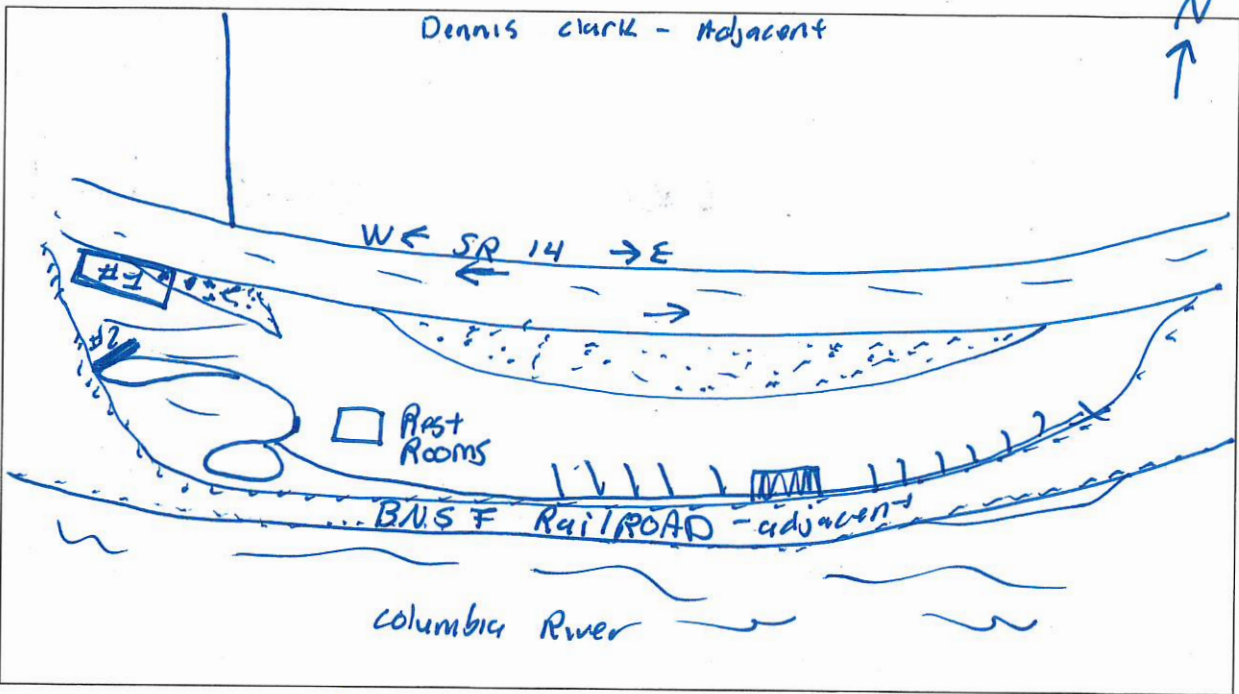 N
Dennis clark - Adjacent
W ← SR 14 → E
#1
#2
Rest
Rooms
B.N.S F RailROAD - adjacent
Columbia River